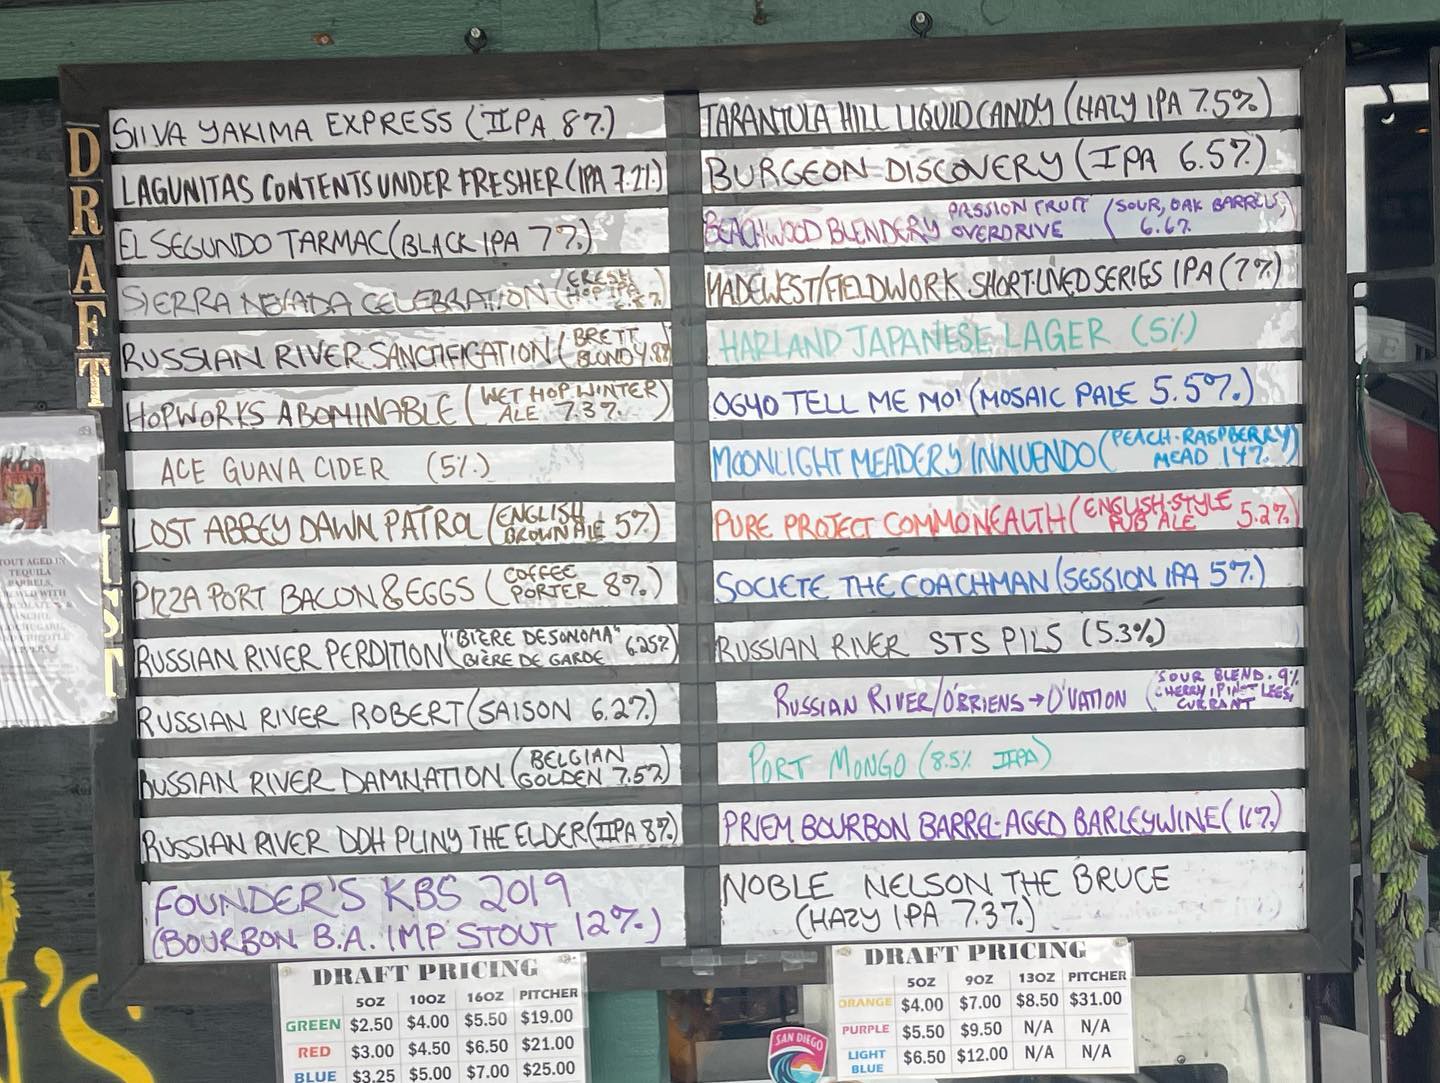 DRAFT
LIST
SIIVA YAKIMA EXPRESS (IIPA 8%)
LAGUNITAS CONTENTS UNDER FRESHER (IPA 7.2%)
EL SEGUNDO TARMAC (BLACK IPA 7%)
SIERRA NEVADA CELEBRATION (FRESH
HOP IPA
RUSSIAN RIVER SANCTIFICATION (BRETT
BLOND 4.8%
HOPWORKS ABOMINABLE (WET HOP WINTER
ALE 7.3%)
ACE GUAVA CIDER (5%)
LOST ABBEY DAWN PATROL (ENGLISH
BROWN ALE 5%)
PIZZA PORT BACON & EGGS (COFFEE
PORTER 8%)
RUSSIAN RIVER PERDITION ("BIÈRE DE SONOMA"
BIÈRE DE GARDE 6.25%)
RUSSIAN RIVER ROBERT (SAISON 6.2%)
RUSSIAN RIVER DAMNATION (BELGIAN
GOLDEN 7.5%)
RUSSIAN RIVER DDH PLINY THE ELDER (IIPA 8%)
FOUNDER'S KBS 2019
(BOURBON B.A. IMP STOUT 12%)
TARANTULA HILL LIQUID CANDY (HAZY IPA 7.5%)
BURGEON DISCOVERY (IPA 6.5%)
BEACHWOOD BLENDERY PASSION FRUIT
OVERDRIVE (SOUR, OAK BARRELS,
6.6%
MADEWEST/FIELDWORK SHORT-LIVED SERIES IPA (7%)
HARLAND JAPANESE LAGER (5%)
OGYO TELL ME MO! (MOSAIC PALE 5.5%)
MOONLIGHT MEADERY INNUENDO (PEACH-RASPBERRY
MEAD 14%)
PURE PROJECT COMMONEALTH (ENGLISH-STYLE
PUB ALE 5.2%)
SOCIETE THE COACHMAN (SESSION IPA 5%)
RUSSIAN RIVER STS PILS (5.3%)
RUSSIAN RIVER/O'BRIENS → O'VATION (SOUR BLEND. 9%
CHERRY, PINOT LEES,
CURRANT
PORT MONGO (8.5% IIPA)
PFRIEM BOURBON BARREL-AGED BARLEYWINE (11%)
NOBLE NELSON THE BRUCE
(HAZY IPA 7.3%)
DRAFT PRICING
5OZ 10OZ 16OZ PITCHER
GREEN $2.50 $4.00 $5.50 $19.00
RED $3.00 $4.50 $6.50 $21.00
BLUE $3.25 $5.00 $7.00 $25.00
DRAFT PRICING
5OZ 9OZ 13OZ PITCHER
ORANGE $4.00 $7.00 $8.50 $31.00
PURPLE $5.50 $9.50 N/A N/A
LIGHT
BLUE $6.50 $12.00 N/A N/A
SAN DIEGO
TEQUILA
BARRELS,